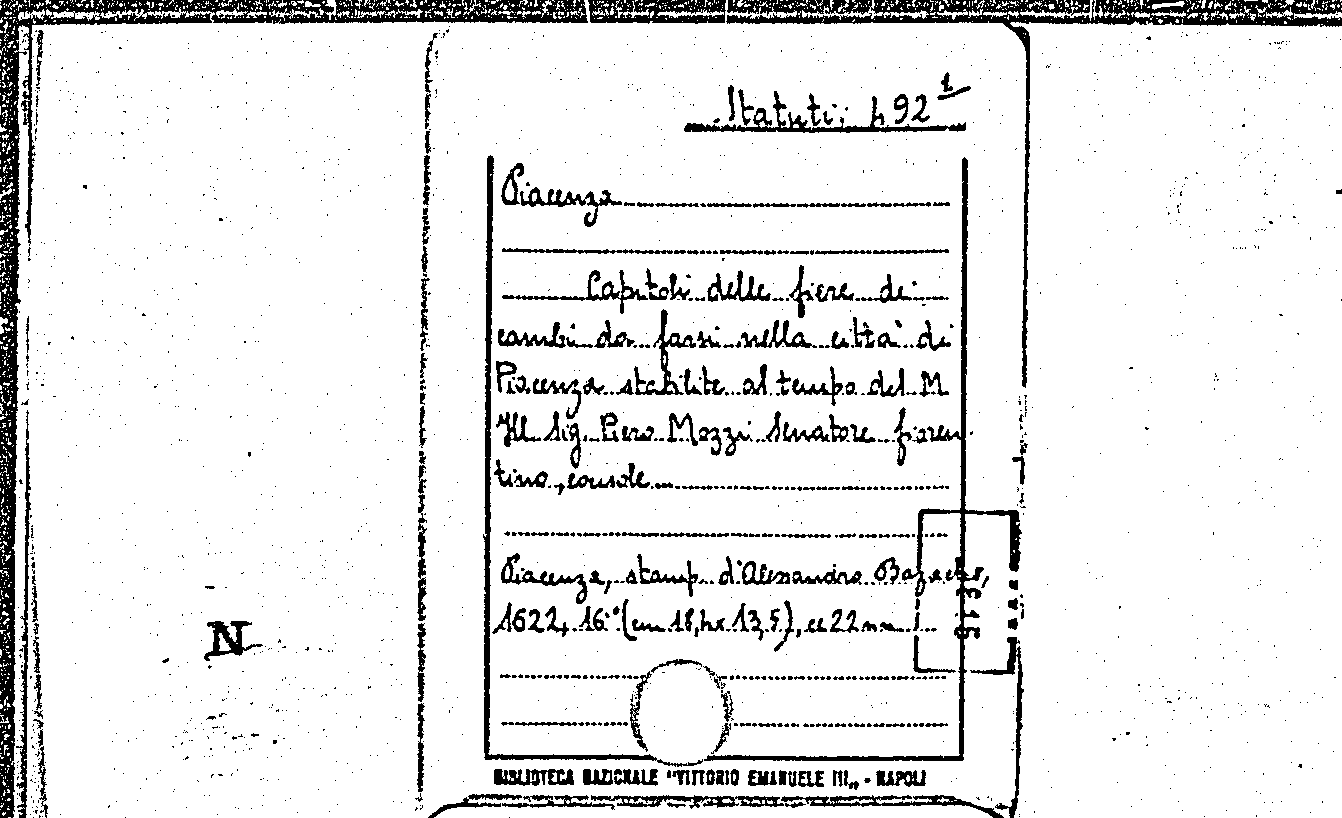 Statuti; 492¹
Piacenza
Capitoli delle fiere di
cambi da farsi nella città di
Piacenza stabilite al tempo del M
Ill Sig. Piero Mozzi Senatore fioren-
tino, console...
Piacenza, stamp. d'Alessandro Bazachi,
1622, 16° (cm 18,4x13,5), cc 22 nn
N
BIBLIOTECA NAZIONALE "VITTORIO EMANUELE III„ - NAPOLI